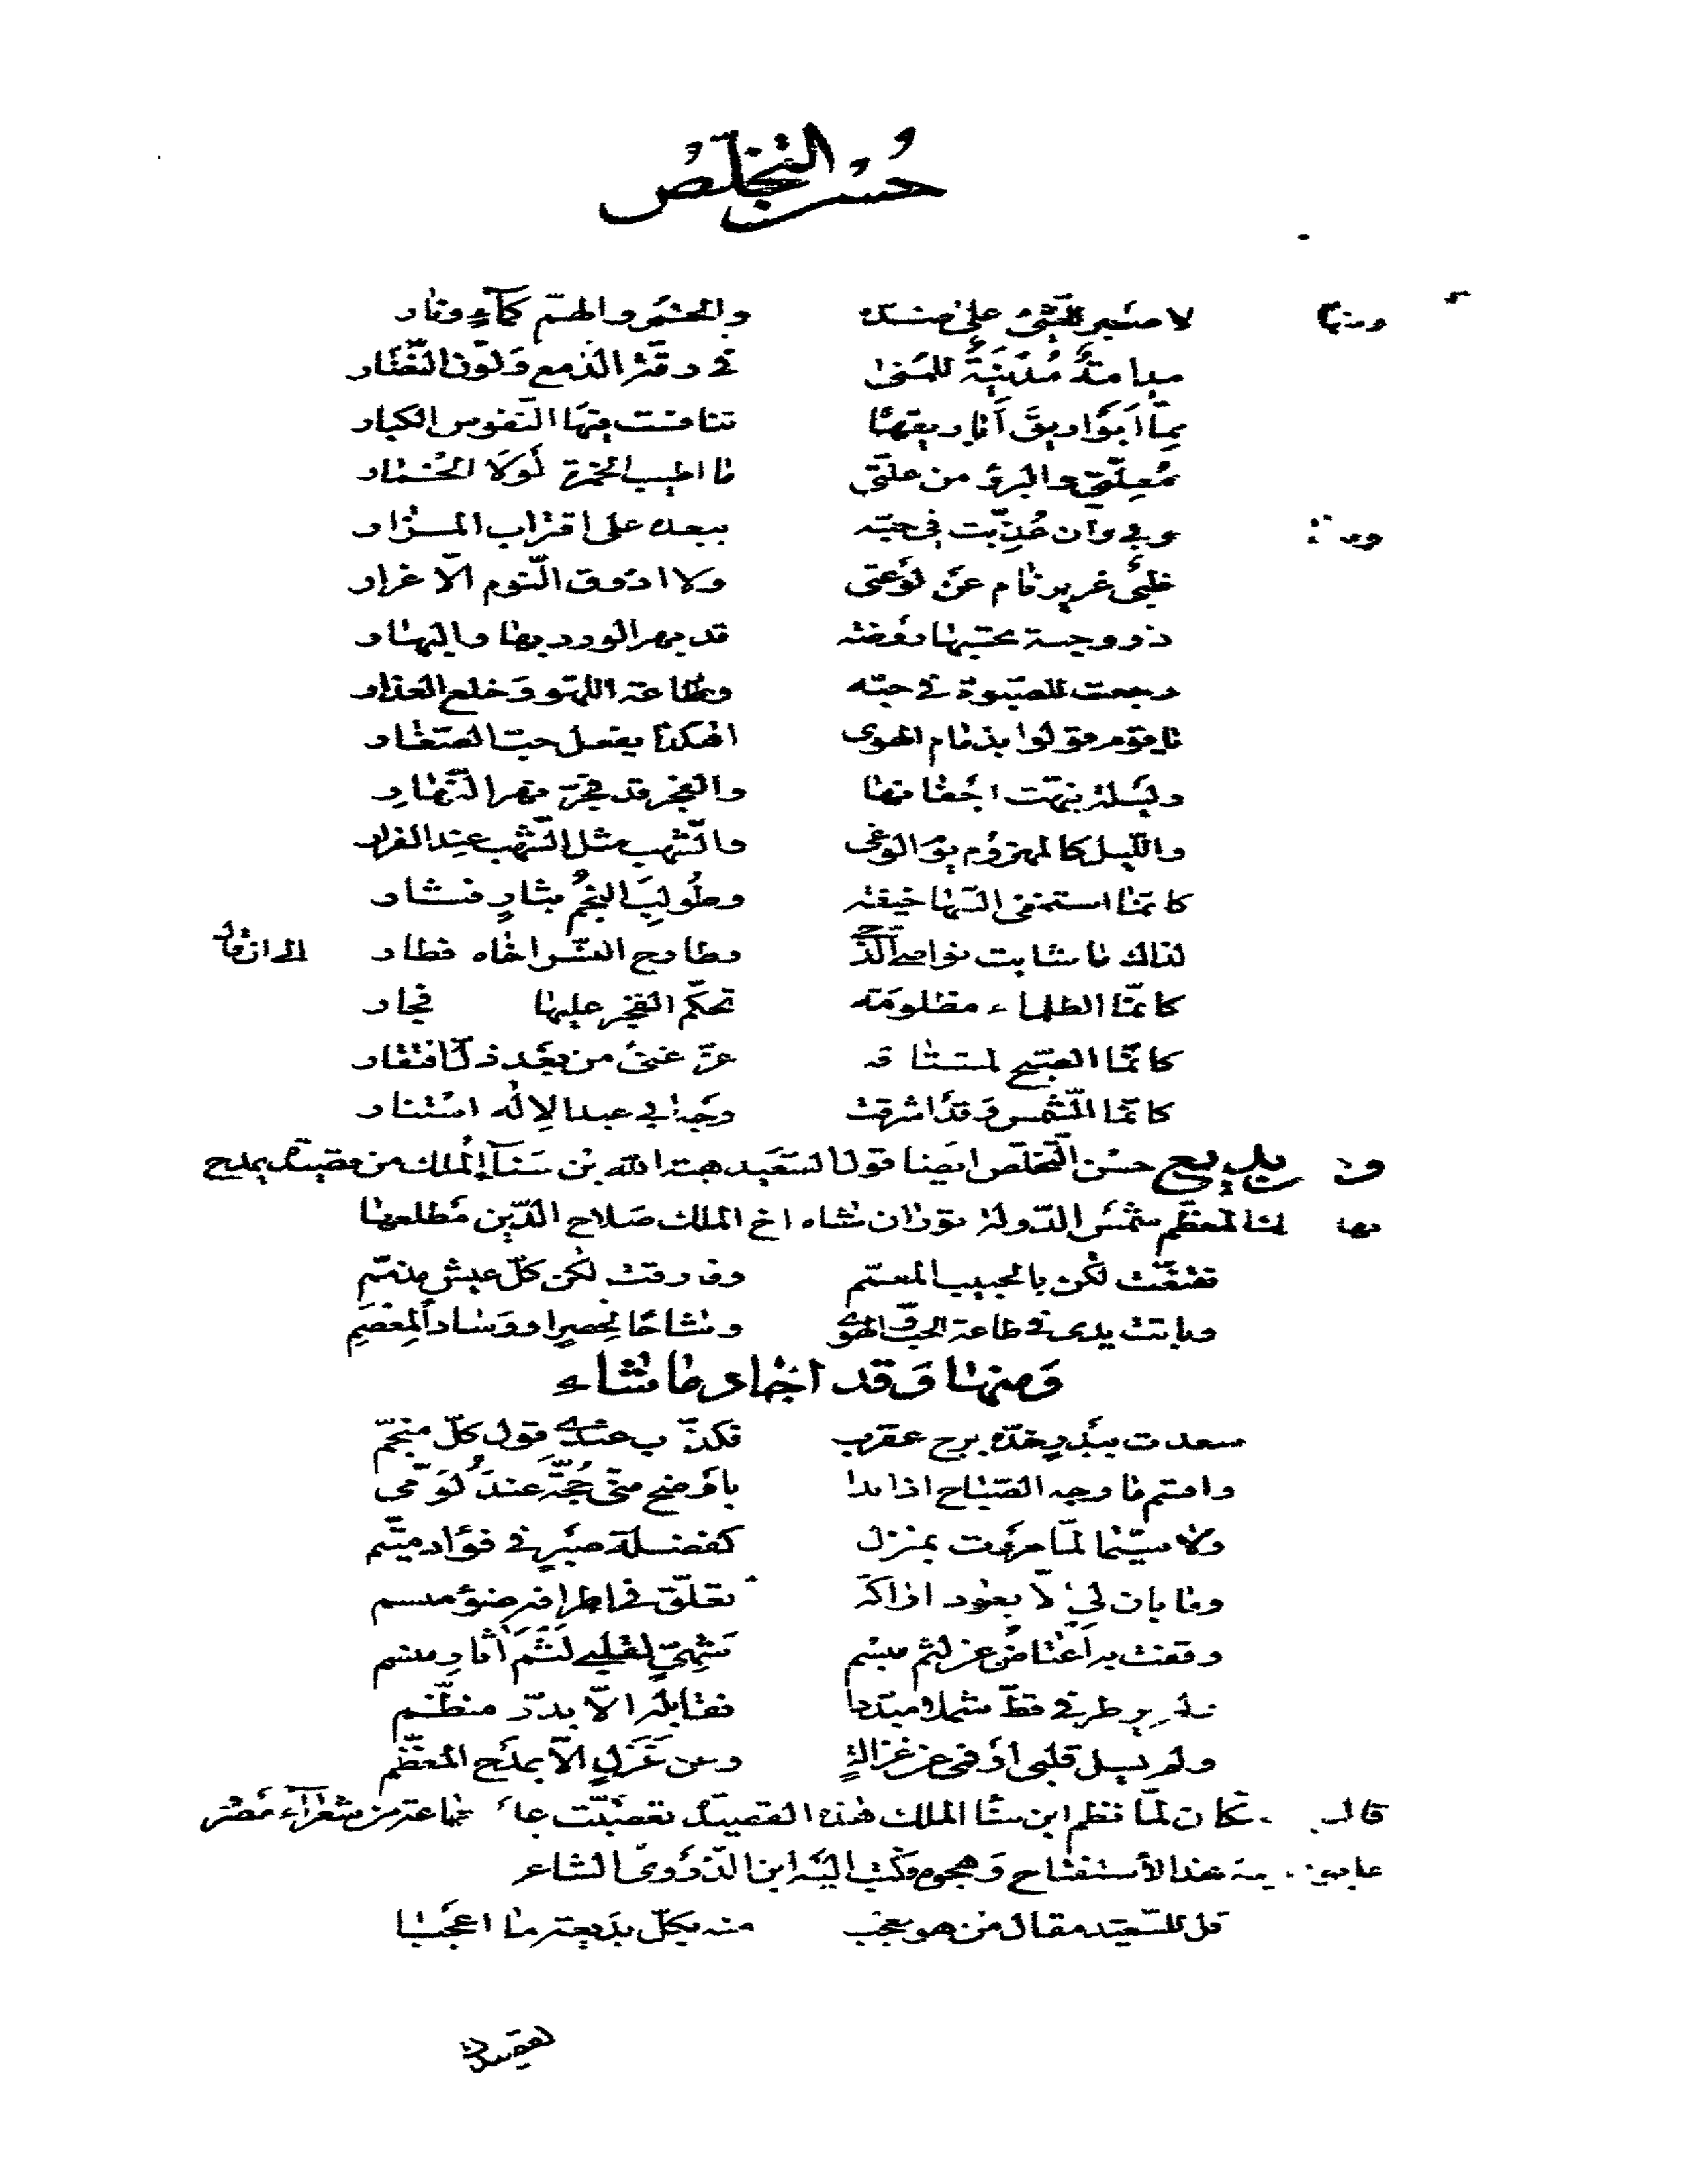 حُسْن التخلّصُ
ومنها لا صبر للشئ على ضدّه والخمر والهمّ كمآءٍ ونار
مدامةٌ مُدنيَةٌ للمنى في رقة الدّمع ولون النضار
ممّا اباريق أباريقها تنافست فيها النّفوس الكبار
مُعلّتي والبرؤ من علّتي ما اطيب الخمرة لولا الخمار
وبي وان عُذّبت في حبّه ببعده على اقتراب المزار
ظبيٌ غرير نام عن لوعتي ولا اذوق النّوم الّا غرار
ذو وجنة قد بهر الورد بها والبهار
رجعت للصّبوة في حبّه وطاعة اللهو وخلع العذار
يا قوم قولوا بذمام الهوى اهكذا يفعل حبّ الصّغار
وليلة نبّهت اجفانها والفجر قد فجّر نهر النّهار
واللّيل كالمهزوم يوم الوغى والشّهب مثل الشّهب عند الفرار
كانمّا استخفى السّها خيفة وطُولِبَ النجمُ بثارٍ فثار
لذاك ما شابت نواصي الدّجى وطارح النسر اخاه فطار الى ان قال
كانّما الظلماء مظلومة تحكّم الفجر عليها فجار
كانّما الصّبح لمشتاقه عزّ غنىً من بعد ذلّ افتقار
كانّما الشّمس وقد اشرقت وجه ابي عبد الاله استنار
ومن بديع حسن التّخلّص ايضا قول السّعيد هبة الله بن سنآ الملك من قصيدة يمدح
بها المعظّم شمس الدّولة توران شاه اخ الملك صلاح الدّين مطلعها
تقنّعت لكن بالحبيب المعمّم وفارقت لكن كلّ عيش مذمّم
وباتت يدي في طاعة الحبّ والهوى وشاحًا لخصرٍ او وسادًا لمعصم
ومنها وقد اجاد ما شاء
سعدت ببدرٍ خدّه برج عقرب فكذّب عندي قول كلّ منجّم
واقسم ما وجه الصّباح اذا بدا باوضح منّي حُجّة عند لُوّمي
ولا سيّما لمّا مررت بمنزل كفضلة صبرٍ في فؤاد متيّم
وما بان لي الّا بعود اراكة تعلّق في اطرافه ضوء مبسم
وقفت به اعتاض عن لثم مبسم شهيّ لقلبي لثم آثار منسم
طرفي قطّ شملا مبدّدا فقابله الّا بدرّ منظّم
ولم يسل قلبي او فمي عن غزالةٍ وعن غزلٍ الّا بمدح المعظّم
قال وكان لمّا نظم ابن سنا الملك هذه القصيدة تعصّبت جماعة من شعرآء مصر
هذا الأستفتاح وهجوه وكتب اليه ابن الذّروي الشاعر
قل للسّعيد مقال من هو معجب منه بكلّ بديعة ما اعجبا